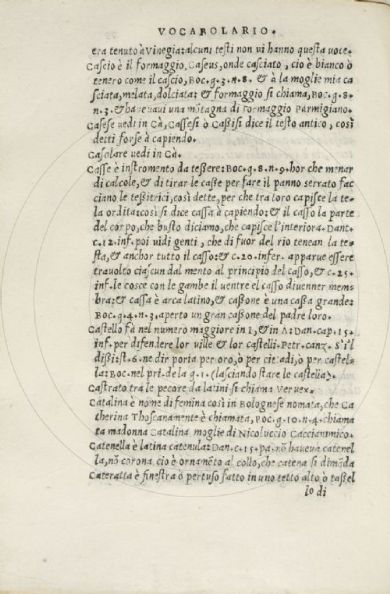 VOCABOLARIO.
era tenuto à Vinegia: alcuni testi non vi hanno questa voce.
Cascio è il formaggio. Caseus, onde casciato, cio è bianco ò
tenero come il cascio, Boc. g. 3. n. 8. & à la moglie mia ca
sciata, melata, dolciata: & formaggio si chiama, Boc. g. 8.
n. 3. & haveavi una mõtagna di formaggio Parmigiano.
Casese vedi in Cà, Cassesi ò Cassisi dice il testo antico, così
detti forse à capiendo.
Casolare vedi in Cà.
Casse è instromento da tessere: Boc. g. 8. n. 9. hor che menar
di calcole, & di tirar le casse per fare il panno serrato fac
ciano le tessitrici, così dette, per che tra loro capisce la te
la ordita: così si dice cassa à capiendo; & il casso la parte
del corpo, che busto diciamo, che capisce l'interiora. Dant.
c. 12. inf. poi vidi genti, che di fuor del rio tenean la te-
sta, & anchor tutto il casso: & c. 20. infer. apparve essere
travolto ciascun dal mento al principio del casso, & c. 25.
inf. le cosce con le gambe il ventre el casso divenner mem
bra: & cassa è arca latino, & cassone è una cassa grande:
Boc. g. 4. n. 3. aperto un gran cassone del padre loro.
Castello fà nel numero maggiore in I, & in A: Dan. cap. 15.
inf. per difendere lor ville & lor castelli. Petr. canz. S'il
dissi: st. 6. ne dir poria per oro, ò per cittadi, ò per castel-
la: Boc. nel pri. de la g. 1. (lasciando stare le castella).
Castrato tra le pecore da latini si chiama Vervex.
Catalina è nome di femina così in Bolognese nomata, che Ca
therina Thoscanamente è chiamata, Boc. g. 10. n. 4. chiama
ta madonna Catalina moglie di Nicoluccio Caccianimico.
Catenella è latina catenula: Dan. c. 15. pa. nõ haveva catenel
la, nõ corona. cio è ornamẽto al collo, che catena si dimãda
Cateratta è finestra ò pertuso fatto in uno tetto alto ò tassel
lo di